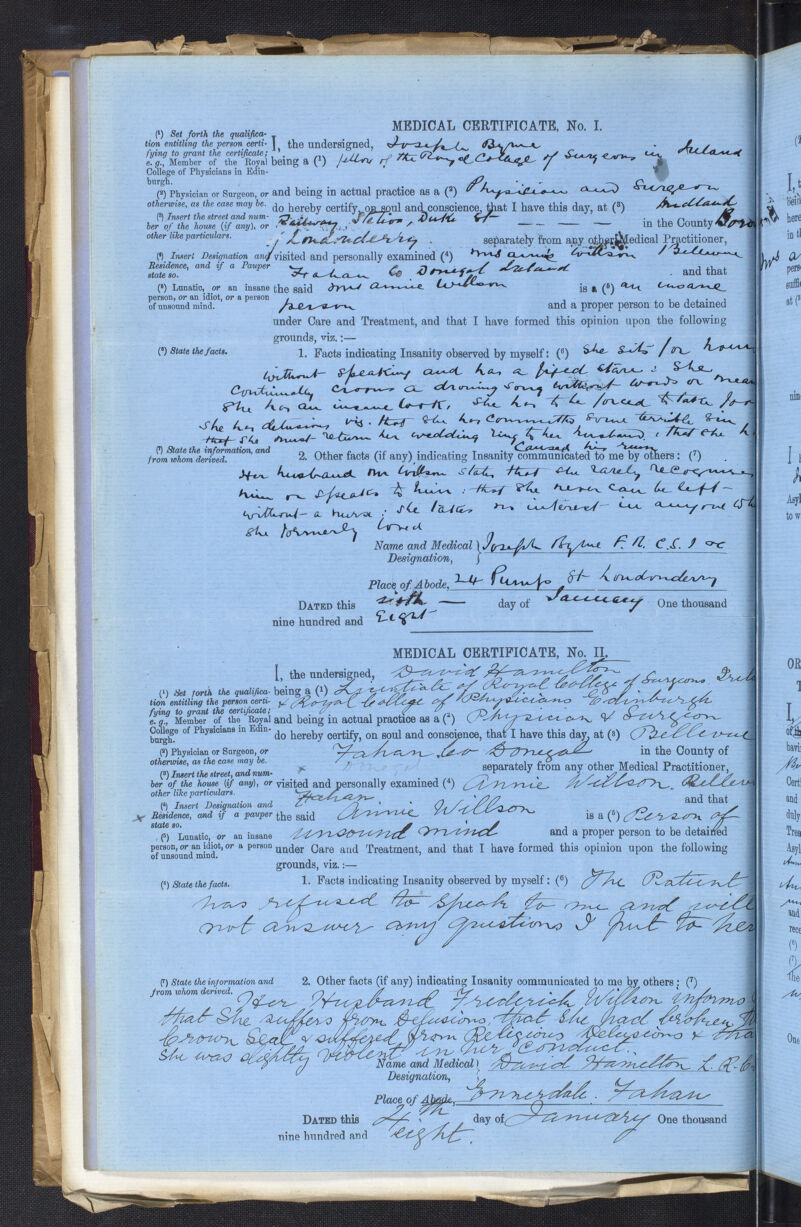 MEDICAL CERTIFICATE, No. I.
(¹) Set forth the qualifica-
tion entitling the person certi-
fying to grant the certificate;
e. g., Member of the Royal
College of Physicians in Edin-
burgh.
I, the undersigned, Joseph Byrne
being a (¹) fellow of the Royal College of Surgeons in Ireland
(²) Physician or Surgeon, or
otherwise, as the case may be.
and being in actual practice as a (²) Physician and Surgeon
(³) Insert the street and num-
ber of the house (if any), or
other like particulars.
do hereby certify, on soul and conscience, that I have this day, at (³) Midland
Railway Station, Duke St — — — — in the County
of Londonderry. separately from any other Medical Practitioner,
(⁴) Insert Designation and
Residence, and if a Pauper
state so.
visited and personally examined (⁴) Mrs Annie Willson Bellevue
Fahan Co Donegal Ireland and that
(⁵) Lunatic, or an insane
person, or an idiot, or a person
of unsound mind.
the said Mrs Annie Willson is a (⁵) an insane
person and a proper person to be detained
under Care and Treatment, and that I have formed this opinion upon the following
grounds, viz. :—
(⁶) State the facts.
1. Facts indicating Insanity observed by myself: (⁶) She sits for hours
without speaking and has a fixed stare: She
continually croons a droning song without words or
She has an insane look, She has to be forced to take
She has delusions viz. that she has committed some terrible sin
that She must return her wedding ring to her husband: that she
caused his ruin
(⁷) State the information, and
from whom derived.
2. Other facts (if any) indicating Insanity communicated to me by others: (⁷)
Her husband Mr Willson states that she rarely recognises
him or speaks to him: that she never can be left
without a nurse: she takes no interest in anyone
she formerly loved
Name and Medical Designation, Joseph Byrne F.R.C.S.I &c
Place of Abode, 24 Pump St Londonderry
DATED this sixth — day of January One thousand
nine hundred and Eight
MEDICAL CERTIFICATE, No. II.
I, the undersigned, David Hamilton
(¹) Set forth the qualifica-
tion entitling the person certi-
fying to grant the certificate;
e. g., Member of the Royal
College of Physicians in Edin-
burgh.
being a (¹) Licentiate of Royal College of Surgeons
& Royal College of Physicians Edinburgh
and being in actual practice as a (²) Physician & Surgeon
(²) Physician or Surgeon, or
otherwise, as the case may be.
do hereby certify, on soul and conscience, that I have this day, at (³) Bellevue
Fahan Co Donegal in the County of
separately from any other Medical Practitioner,
(³) Insert the street, and num-
ber of the house (if any), or
other like particulars.
visited and personally examined (⁴) Annie Willson. Bellevue
Fahan and that
(⁴) Insert Designation and
Residence, and if a pauper
state so.
the said Annie Willson is a (⁵) Person of
unsound mind and a proper person to be detained
(⁵) Lunatic, or an insane
person, or an idiot, or a person
of unsound mind.
under Care and Treatment, and that I have formed this opinion upon the following
grounds, viz. :—
(⁶) State the facts.
1. Facts indicating Insanity observed by myself: (⁶) The Patient
has refused to speak to me and will
not answer any questions I put to her
(⁷) State the information and
from whom derived.
2. Other facts (if any) indicating Insanity communicated to me by others; (⁷)
Her Husband Frederick Willson informs
that She suffers from Delusions that She had broken
Crown Seal & suffered from Religious Delusions &
She was slightly violent in her conduct.
Name and Medical Designation, David Hamilton L.R.C.
Place of Abode, Ennerdale. Fahan
DATED this 4th day of January One thousand
nine hundred and eight.